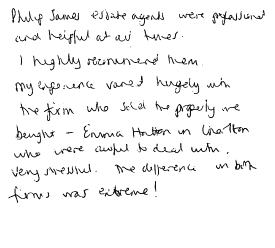 Philip James estate agents were professional
and helpful at all times.
I highly recommend them.
My experience varied hugely with
the firm who sold the property we
bought - Emma Hatton in Chorlton
who were awful to deal with.
Very stressful. The difference in both
firms was extreme!